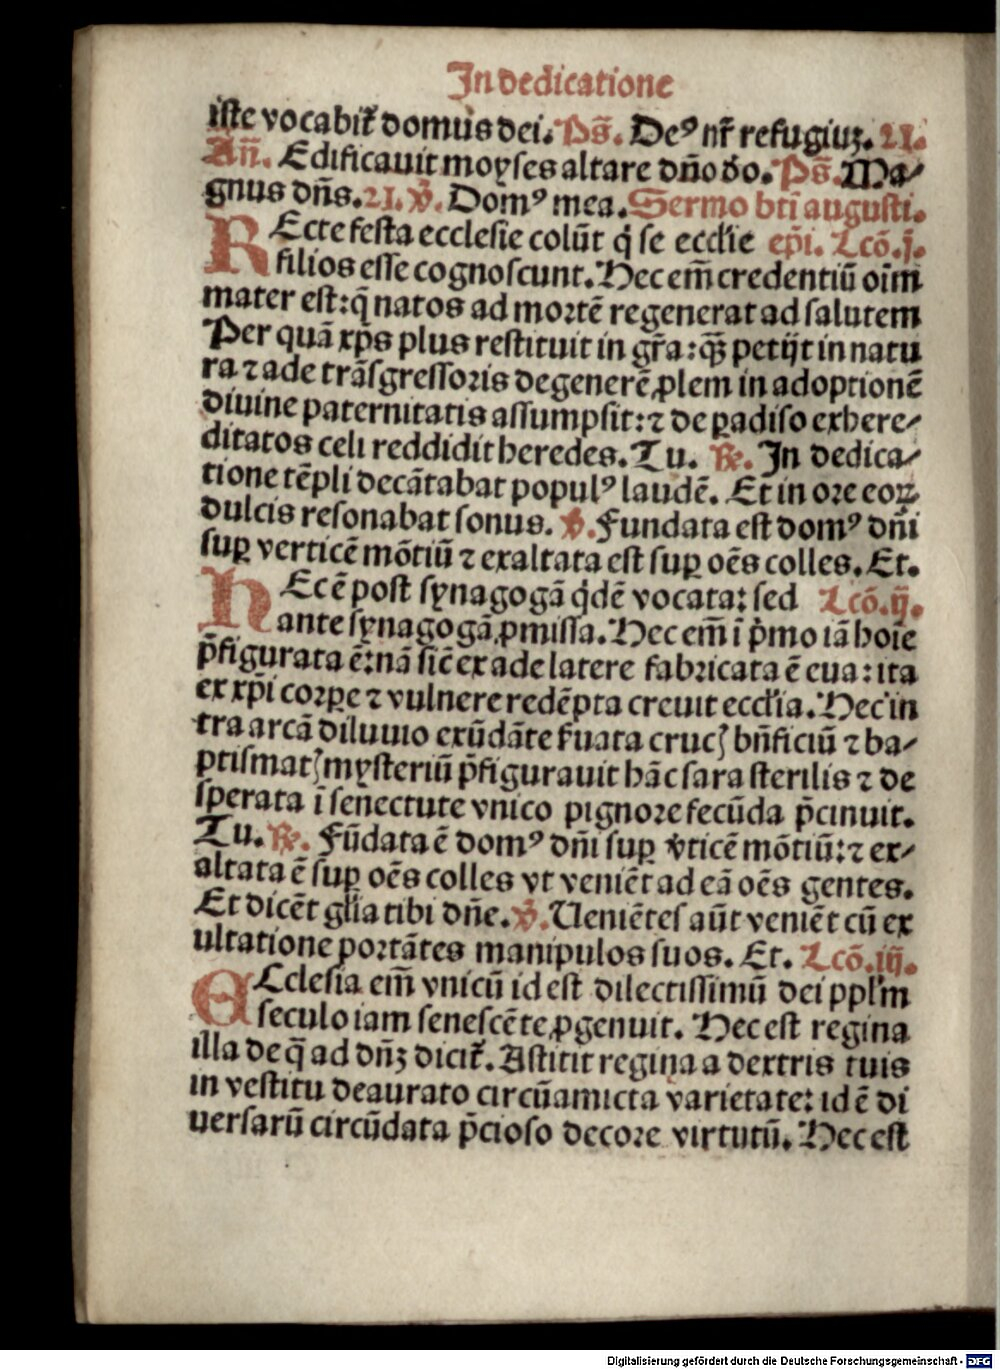 In dedicatione
iste vocabit᷑ domus dei. Ps̄. De⁹ nr̄ refugiuʒ. 21.
An̄. Edificauit moyses altare dn̄o đo. Ps̄. Ma⸗
gnus dn̄s. 21. V̄. Dom⁹ mea. Sermo bt̄i augusti.
REcte festa ecclesie colūt q́ se eccl̄ie ep̄i. Lcō. j.
filios esse cognoscunt. Hec em̄ credentiū oīm
mater est: q̄ natos ad mortē regenerat ad salutem
Per quā xp̄s plus restituit in gr̄a: qꝫ̄ petijt in natu
ra ⁊ ade trāsgressoris degenerē ꝓlem in adoptionē
diuine paternitatis assumpsit: ⁊ de ꝑadiso exhere⸗
ditatos celi reddidit heredes. Tu. R̄. In dedica⸗
tione tēpli decātabat popul⁹ laudē. Et in ore eoꝝ
dulcis resonabat sonus. V̄. Fundata est dom⁹ dn̄i
suꝑ verticē mōtiū ⁊ exaltata est suꝑ oēs colles. Et.
HEc ē post synagogā q́dē vocata: sed Lcō. ij.
ante synagogā ꝓmissa. Hec em̄ ī p̓mo iā hoīe
p̄figurata ē: nā sic̄ ex ade latere fabricata ē eua: ita
ex xp̄i corꝑe ⁊ vulnere redēpta creuit eccl̄ia. Hec in
tra arcā diluuio exūdāte ẜuata crucꝭ bn̄ficiū ⁊ ba⸗
ptismatꝭ mysteriū p̄figurauit hāc sara sterilis ⁊ de
sperata ī senectute vnico pignore fecūda p̄cinuit.
Tu. R̄. Fūdata ē dom⁹ dn̄i suꝑ v̓ticē mōtiū: ⁊ ex⸗
altata ē suꝑ oēs colles vt veniēt ad eā oēs gentes.
Et dicēt gl̄ia tibi dn̄e. V̄. Ueniētes aūt veniēt cū ex
ultatione portātes manipulos suos. Et. Lcō. iij.
ECclesia em̄ vnicū id est dilectissimū dei ppl̓m
seculo iam senescēte ꝓgenuit. Hec est regina
illa de q̄ ad dn̄ʒ dicit᷑. Astitit regina a dextris tuis
in vestitu deaurato circūamicta varietate: id ē di
uersarū circūdata p̄cioso decore virtutū. Hec est
Digitalisierung gefördert durch die Deutsche Forschungsgemeinschaft - DFG